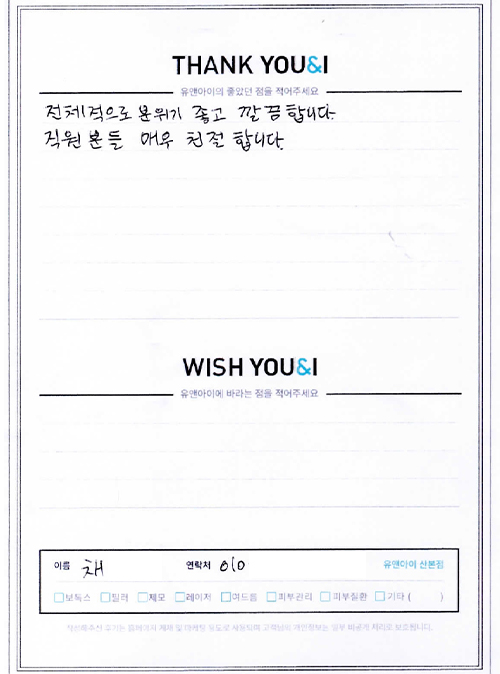 THANK YOU&I
유앤아이의 좋았던 점을 적어주세요
전체적으로 분위기 좋고 깔끔합니다.
직원분들 매우 친절합니다.
WISH YOU&I
유앤아이에 바라는 점을 적어주세요
이름 채 연락처 010 유앤아이 산본점
보톡스 필러 제모 레이저 여드름 피부관리 피부질환 기타 ( )
작성해주신 후기는 홈페이지 게재 및 마케팅 용도로 사용되며 고객님의 개인정보는 일부 비공개 처리로 보호됩니다.